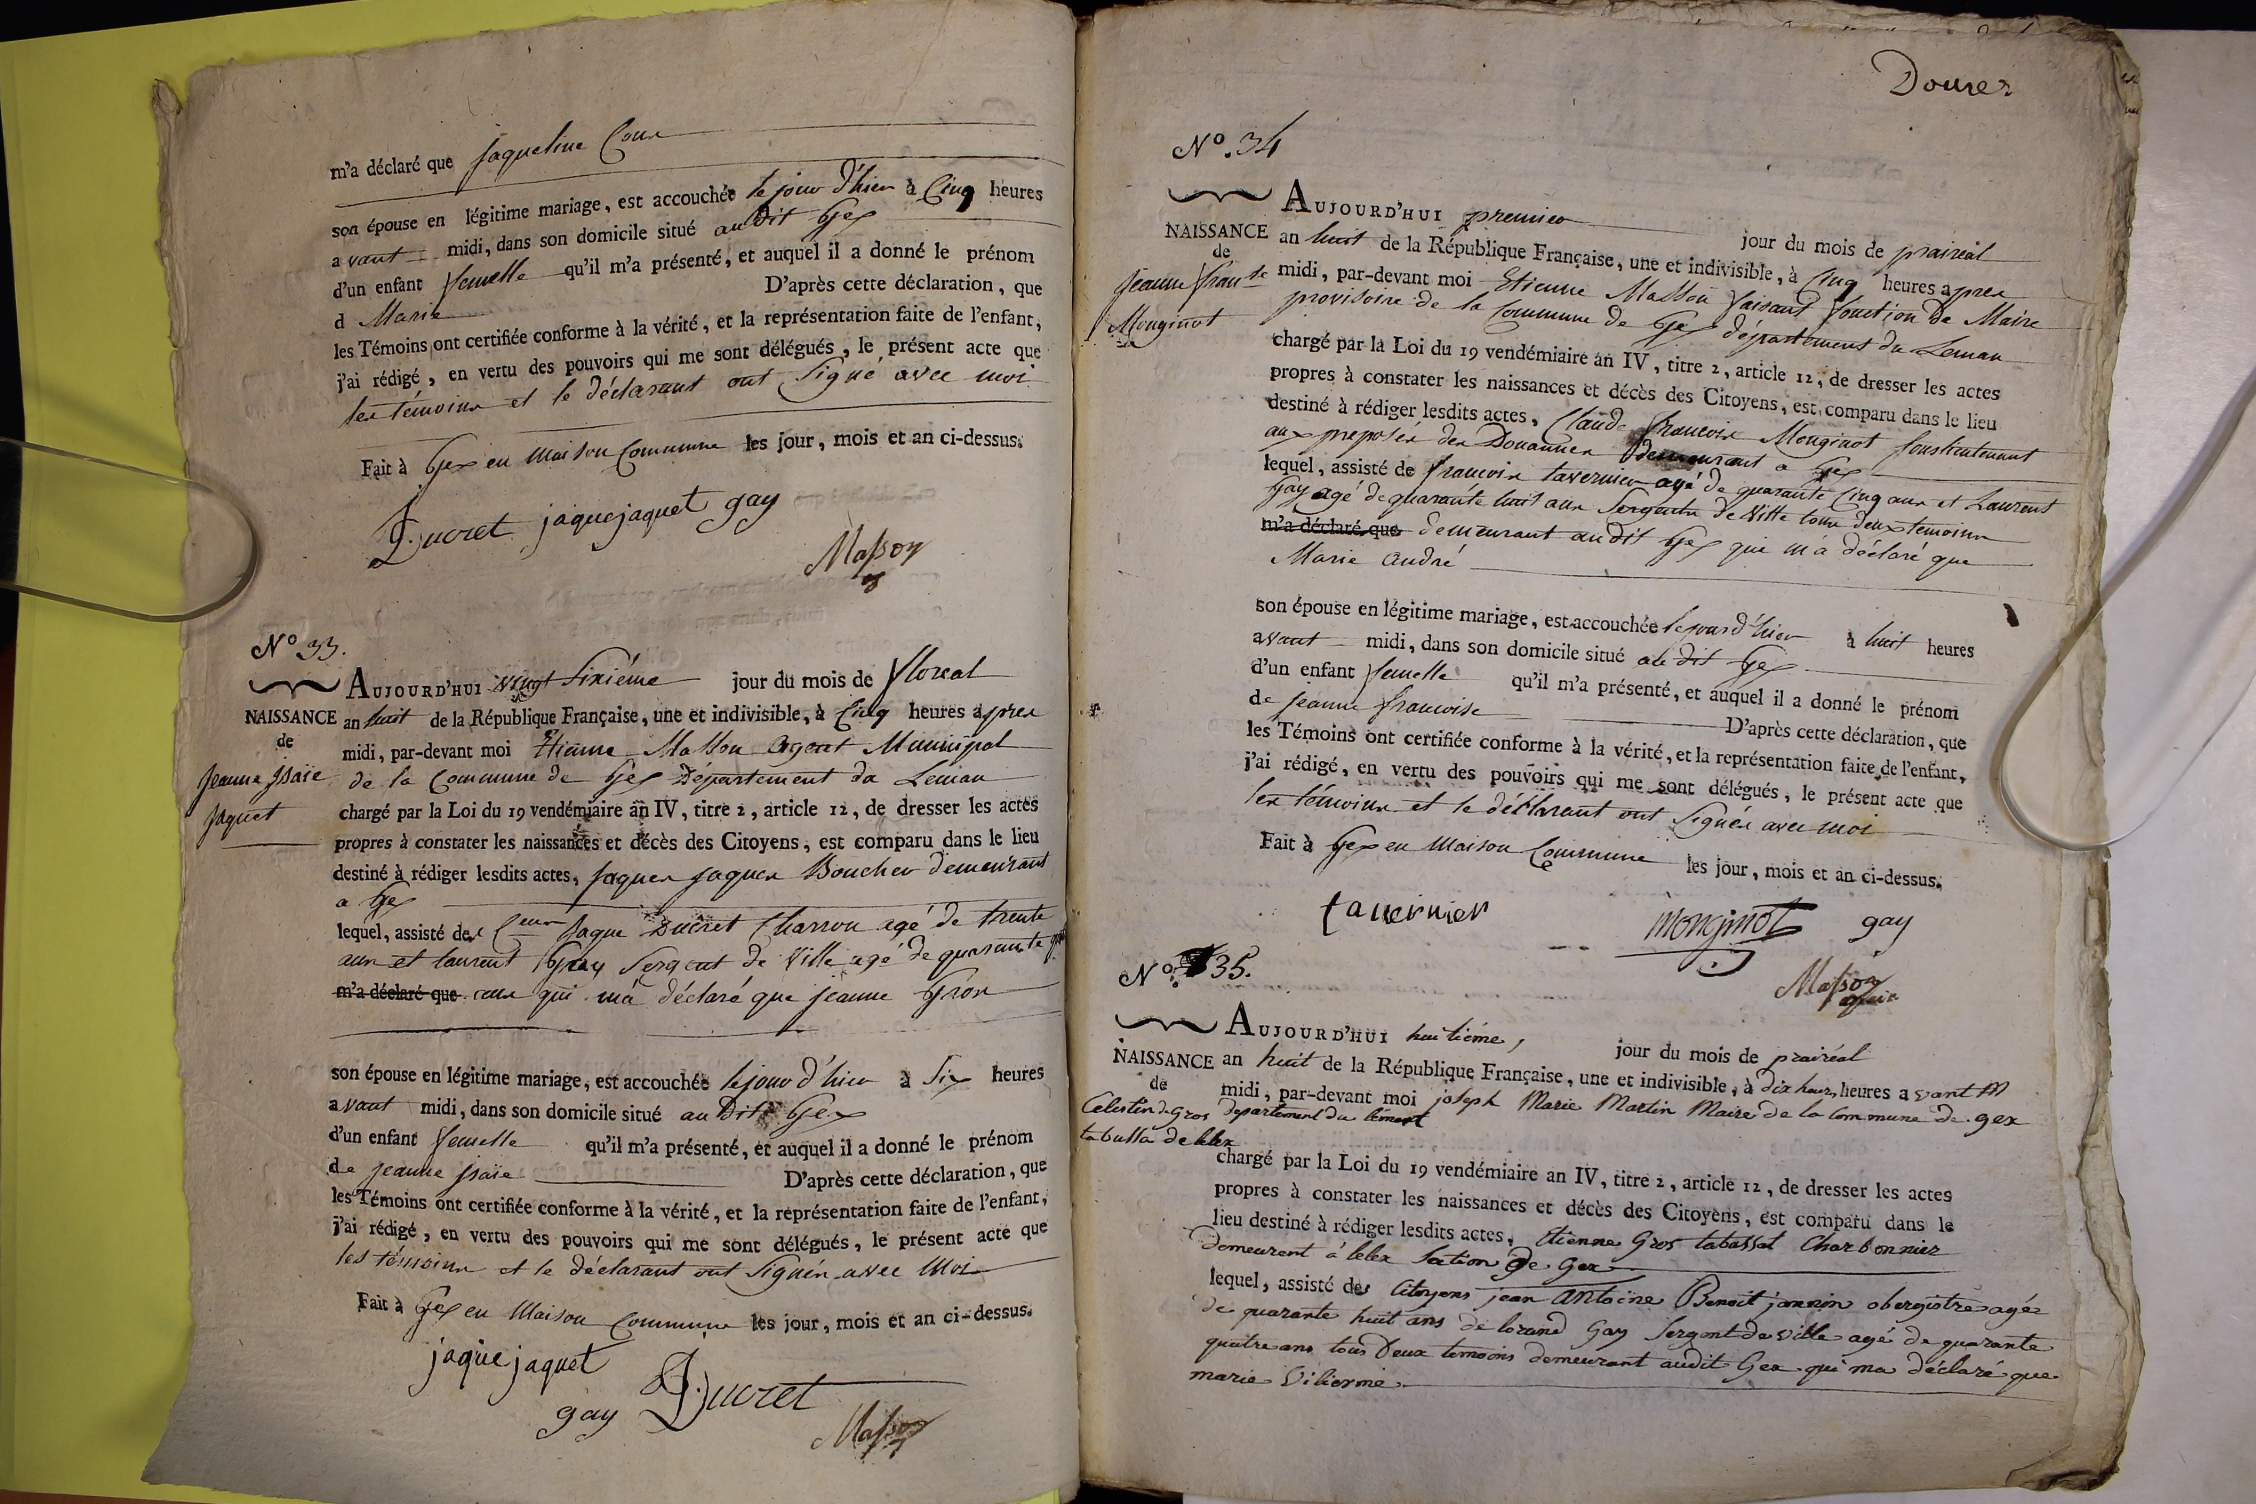 m'a déclaré que jaqueline Cour
son épouse en légitime mariage, est accouchée le jour d'hier à Cinq heures
avant midi, dans son domicile situé au Dit Gex
d'un enfant femelle qu'il m'a présenté, et auquel il a donné le prénom
d Marie D'après cette déclaration, que
les Témoins ont certifiée conforme à la vérité, et la représentation faite de l'enfant,
j'ai rédigé, en vertu des pouvoirs qui me sont délégués, le présent acte que
les témoins et le déclarant ont Signé avec moi
Fait à Gex en Maison Commune les jour, mois et an ci-dessus.
Ducret jaque jaquet gay
Masson
N° 33.
AUJOURD'HUI vingt Sixiéme jour du mois de floreal
NAISSANCE an huit de la République Française, une et indivisible, à Cinq heures apres
de
midi, par-devant moi Etienne Masson Agent Municipal
Jeanne Isaïe
de la Commune de Gex Département du Leman
Jaquet
chargé par la Loi du 19 vendémiaire an IV, titre 2, article 12, de dresser les actes
propres à constater les naissances et décès des Citoyens, est comparu dans le lieu
destiné à rédiger lesdits actes, Jaques Jaques Boucher demeurant
a Gex
lequel, assisté des Cens Jaque Ducret Charron agé de trente
ans et laurent Gay Sergent de Ville agé de quarante
m'a déclaré que qui m'a déclaré que jeanne Gros
son épouse en légitime mariage, est accouchée le jour d'hier à Six heures
avant midi, dans son domicile situé au Dit Gex
d'un enfant femelle qu'il m'a présenté, et auquel il a donné le prénom
de jeanne Isaïe D'après cette déclaration, que
les Témoins ont certifiée conforme à la vérité, et la représentation faite de l'enfant,
j'ai rédigé, en vertu des pouvoirs qui me sont délégués, le présent acte que
les témoins et le déclarant ont Signés avec Moi
Fait à Gex en Maison Commune les jour, mois et an ci-dessus.
jaque jaquet
gay Ducret
Masson
Douzes
N°. 34
AUJOURD'HUI premier jour du mois de prairéal
NAISSANCE an huit de la République Française, une et indivisible, à Cinq heures apres
de
Jeanne franse
midi, par-devant moi Etienne Masson faisant fonction de Maire
Monginot
provisoire de la Commune de Gex département du Leman
chargé par la Loi du 19 vendémiaire an IV, titre 2, article 12, de dresser les actes
propres à constater les naissances et décès des Citoyens, est comparu dans le lieu
destiné à rédiger lesdits actes, Claude francois Monginot souslieutenant
aux preposés des Douannes demeurant a Gex
lequel, assisté de francois tavernier agé de quarante Cinq ans et Laurent
Gay agé de quarante huit ans Sergent de Ville tous deux temoins
m'a déclaré que demeurant audit Gex qui m'a déclaré que
Marie andré
son épouse en légitime mariage, est accouchée le jour d'hier à huit heures
avant midi, dans son domicile situé au dit Gex
d'un enfant femelle qu'il m'a présenté, et auquel il a donné le prénom
de jeanne francoise D'après cette déclaration, que
les Témoins ont certifiée conforme à la vérité, et la représentation faite de l'enfant,
j'ai rédigé, en vertu des pouvoirs qui me sont délégués, le présent acte que
les témoins et le déclarant ont Signés avec moi
Fait à Gex en Maison Commune les jour, mois et an ci-dessus.
tavernier monginot gay
Masson
N°. 35.
AUJOURD'HUI huitiéme, jour du mois de prairéal
NAISSANCE an huit de la République Française, une et indivisible, à dix heures heures avant M
de
midi, par-devant moi joseph Marie Martin Maire de la Commune de gex
Celestin de Gros
departement du lément
tabussa de lelex
chargé par la Loi du 19 vendémiaire an IV, titre 2, article 12, de dresser les actes
propres à constater les naissances et décès des Citoyens, est comparu dans le
lieu destiné à rédiger lesdits actes, Etienne Gros tabassat Charbonnier
demeurent á lelex Section de Gex
lequel, assisté des Citoyens jean antoine Benoit jannin obergistre agée
de quarante huit ans de lorand Gay Sergent de ville agé de quarante
quatre ans tous Deux temoins demeurant audit Gex qui ma déclaré que
marie Vilierme